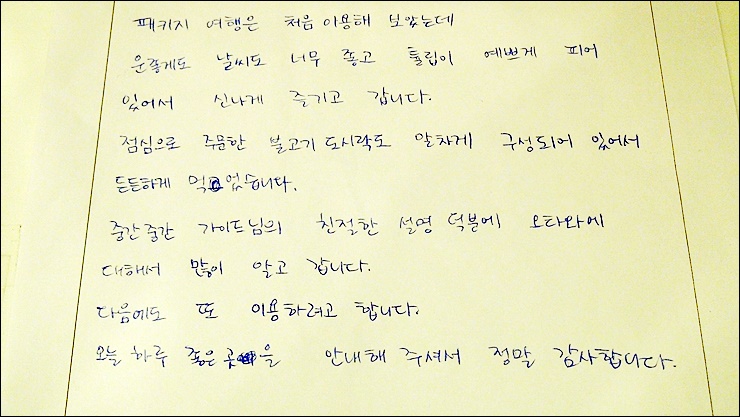 패키지 여행은 처음 이용해 보았는데
운좋게도 날씨도 너무 좋고 튤립이 예쁘게 피어
있어서 신나게 즐기고 갑니다.
점심으로 주문한 불고기 도시락도 알차게 구성되어 있어서
든든하게 먹었습니다.
중간중간 가이드님의 친절한 설명 덕분에 오타와에
대해서 많이 알고 갑니다.
다음에도 또 이용하려고 합니다.
오늘 하루 좋은 곳을 안내해 주셔서 정말 감사합니다.